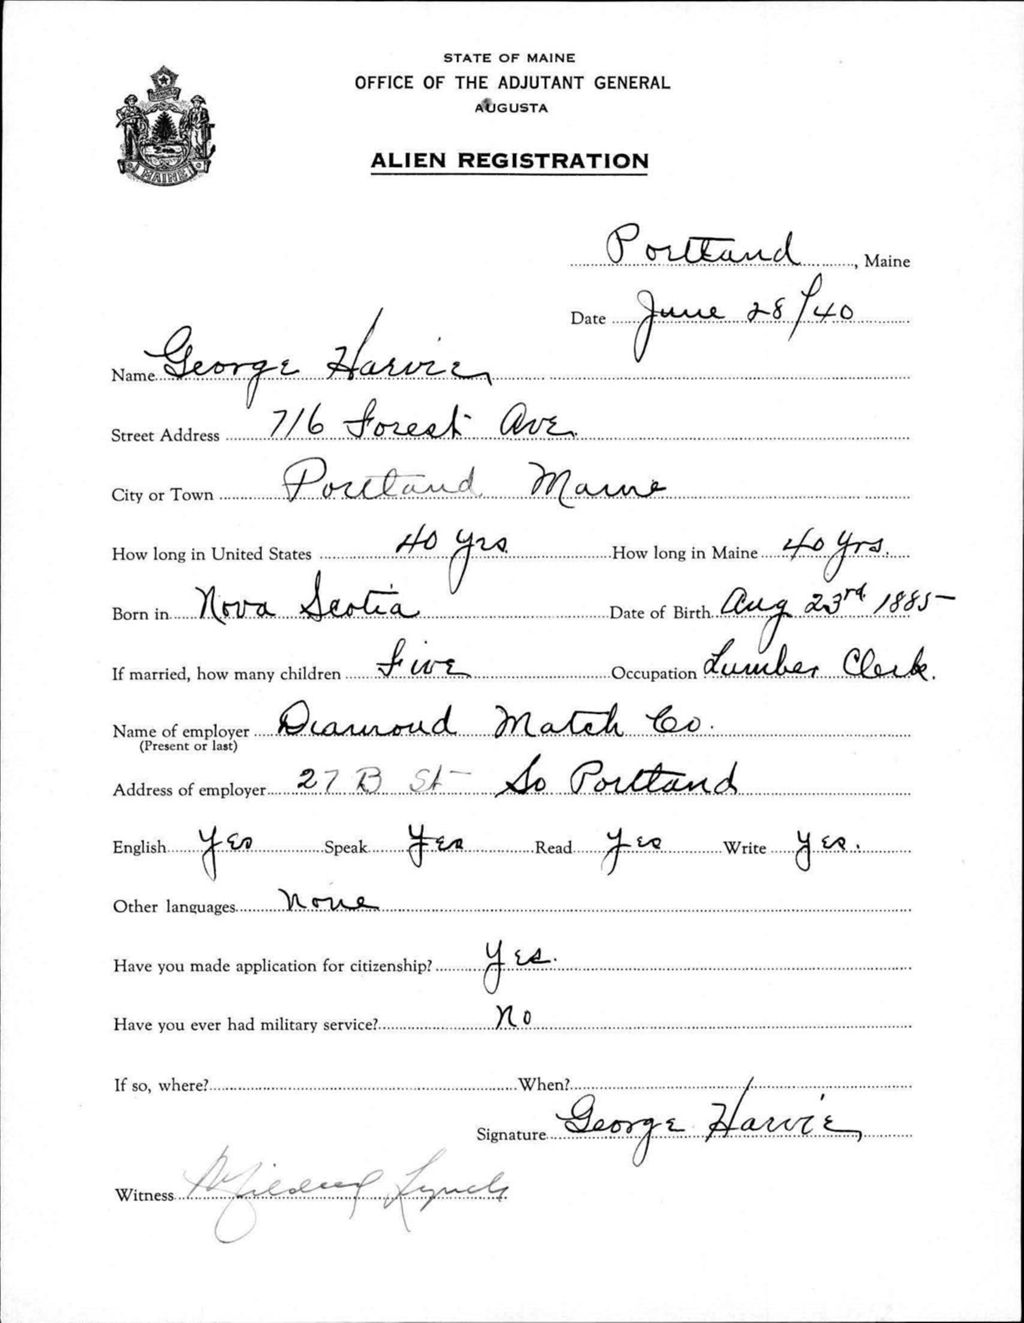 STATE OF MAINE
OFFICE OF THE ADJUTANT GENERAL
AUGUSTA
ALIEN REGISTRATION
MAINE
Portland, Maine
Date June 28/40
Name George Harvie
Street Address 716 Forest Ave.
City or Town Portland Maine
How long in United States 40 yrs. How long in Maine 40 yrs.
Born in Nova Scotia Date of Birth Aug 23rd 1885
If married, how many children Five Occupation Lumber Clerk.
Name of employer Diamond Match Co.
(Present or last)
Address of employer 27 B St So Portland
English Yes Speak Yes Read Yes Write Yes.
Other languages None
Have you made application for citizenship? Yes.
Have you ever had military service? No
If so, where? When?
Signature George Harvie
Witness Mildred Lynch